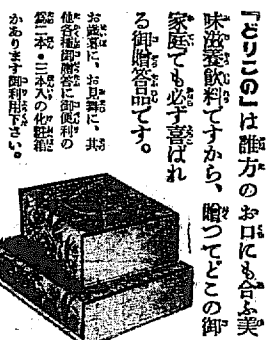 『どりこの』は誰方のお口にも合ふ美
味滋養飮料ですから、贈つてどこの御
家庭でも必ず喜ばれ
る御贈答品です。
お歳暮に、お見舞に、其
他各種御贈答に御便利の
爲二本・三本入の化粧箱
があります御利用下さい。